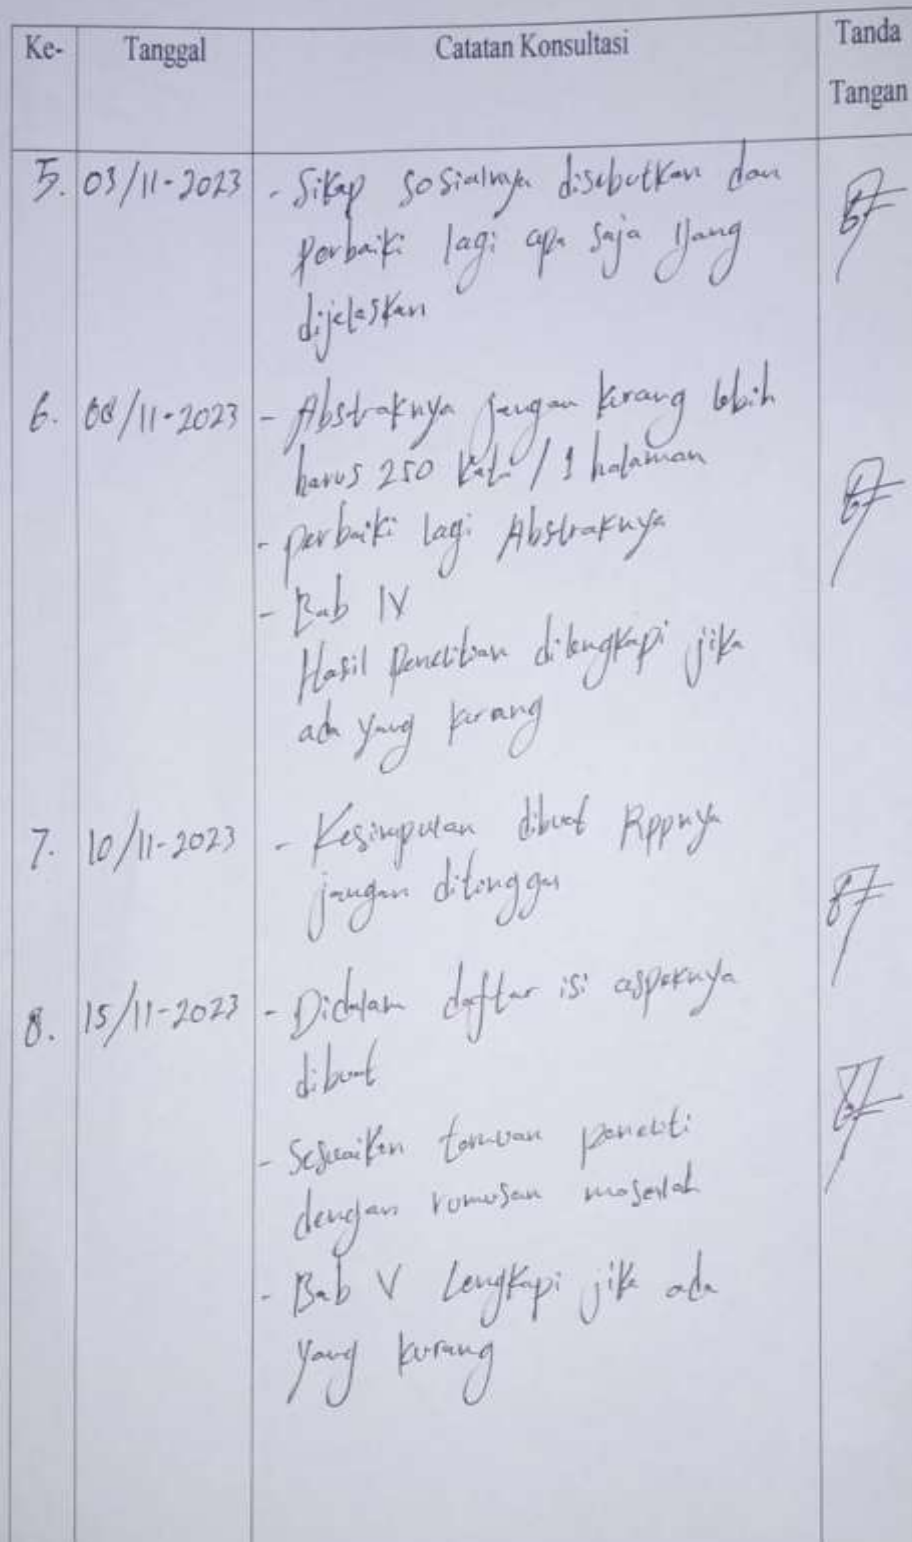 Ke- Tanggal Catatan Konsultasi Tanda Tangan
5. 03/11-2023 - Sikap sosialnya disebutkan dan
perbaiki lagi apa saja yang
dijelaskan
6. 08/11-2023 - Abstraknya jangan kurang lebih
harus 250 kata / 1 halaman
- perbaiki lagi Abstraknya
- Bab IV
Hasil penelitian dilengkapi jika
ada yang kurang
7. 10/11-2023 - Kesimpulan dibuat Rppnya
jangan ditinggal
8. 15/11-2023 - Didalam daftar isi aspeknya
dibuat
- Sesuaikan temuan peneliti
dengan rumusan masalah
- Bab V Lengkapi jika ada
yang kurang